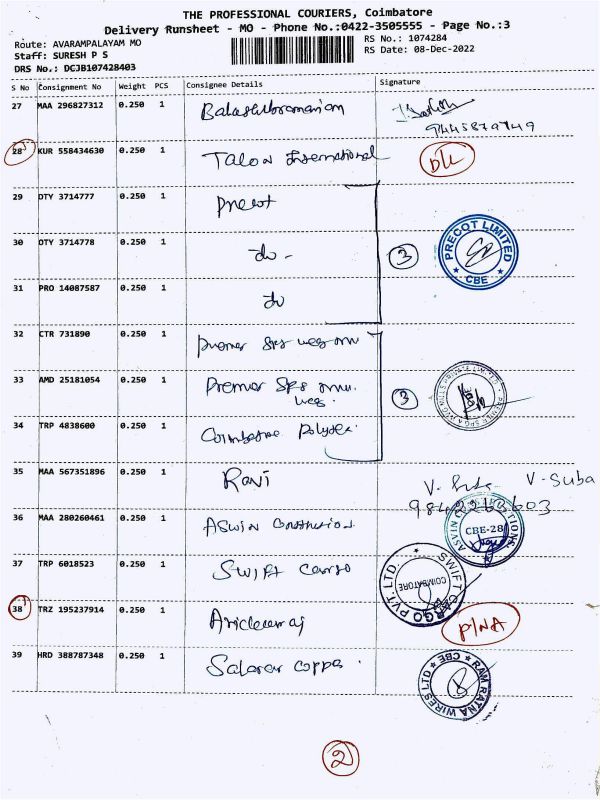 THE PROFESSIONAL COURIERS, Coimbatore
Delivery Runsheet - MO - Phone No.:0422-3505555 - Page No.:3
Route: AVARAMPALAYAM MO
RS No.: 1074284
Staff: SURESH P S
RS Date: 08-Dec-2022
DRS No.: DCJB107428403
S No Consignment No Weight PCS Consignee Details Signature
27 MAA 296827312 0.250 1 Balasubramaniam
28 KUR 558434630 0.250 1 Talon International D/L
29 DTY 3714777 0.250 1 Precot
30 DTY 3714778 0.250 1 do - 3 PRECOT LIMITED CBE
31 PRO 14087587 0.250 1 do
32 CTR 731890 0.250 1 Premier
33 AMD 25181054 0.250 1 Premier 3
34 TRP 4838600 0.250 1 Coimbatore Polytex
35 MAA 567351896 0.250 1 Ravi V. Suba
36 MAA 280260461 0.250 1 Aswin Construction ASVIN CONSTRUCTIONS CBE-28
37 TRP 6018523 0.250 1 Swift Cargo SWIFT CARGO PVT. LTD. COIMBATORE
38 TRZ 195237914 0.250 1 P/NA
39 HRD 388787348 0.250 1 RAM RATNA WIRES LTD CBE
2